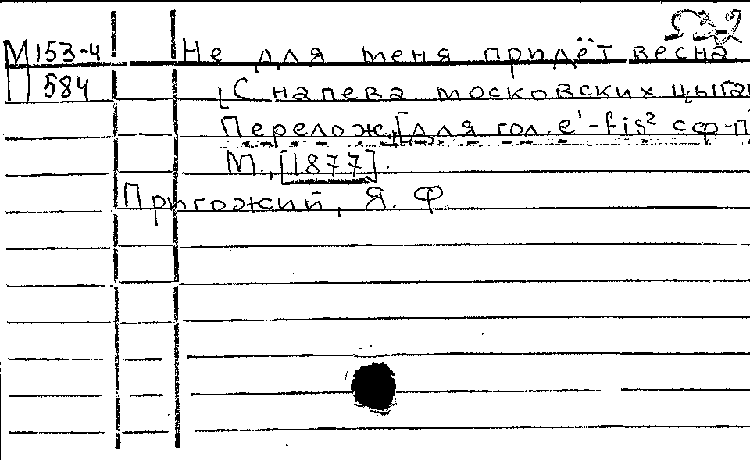 М 153-4 Не для меня придёт весна
П 584 [С напева московских цыган
Перелож. [для гол. e¹-fis² с ф-п
М., [1877].
Пригожий, Я. Ф